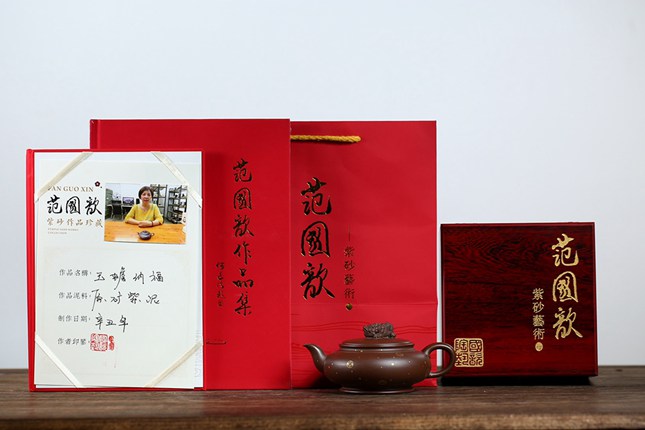 FAN GUO XIN
范國歆
紫砂作品珍藏
作品名稱: 玉蟾納福
作品泥料:
制作日期: 辛丑年
作者印鑒:
范國歆作品集
范國歆
紫砂藝術
范國歆
紫砂藝術